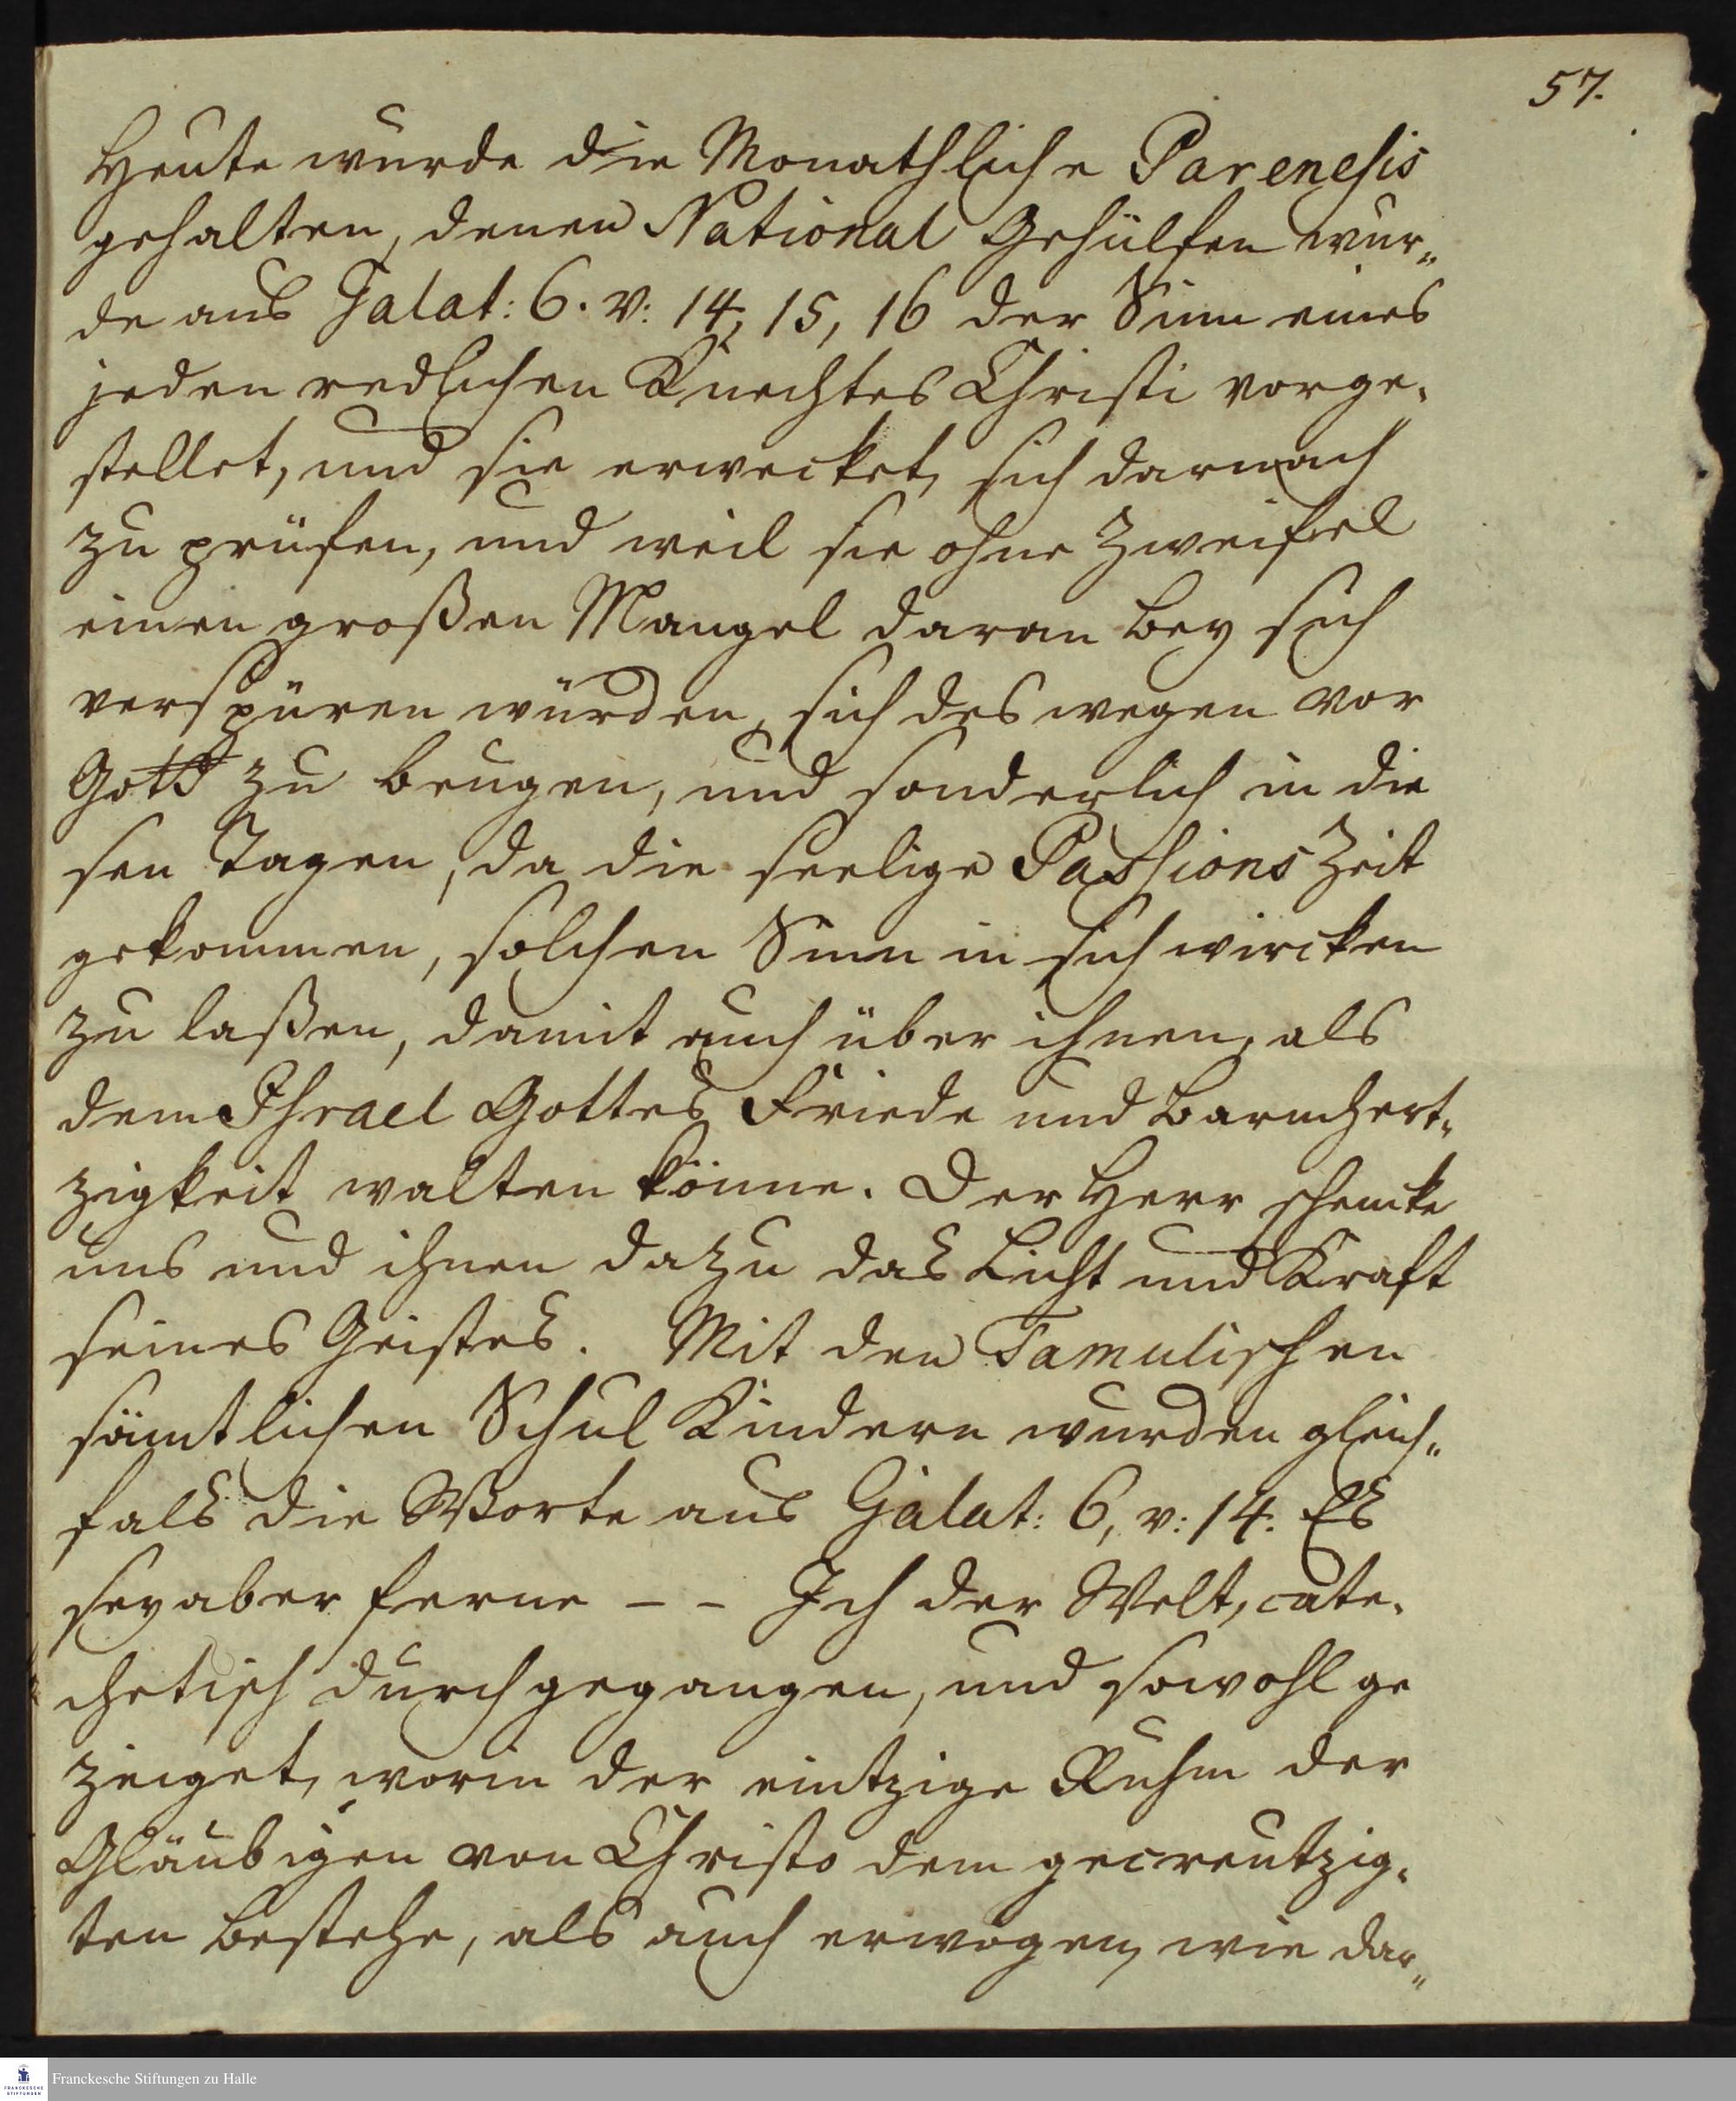 57.
Heute wurde die Monathliche Parenesis
gehalten, denen National Gehülfen wur„
de aus Galat: 6. v: 14, 15, 16 der Sinn eines
jeden redlichen Knechtes Christi vorge„
stellet, und sie erwecket, sich darnach
zu prüfen, und weil sie ohne Zweifel
einen großen Mangel daran bey sich
verspüren würden, sich deswegen vor
Gott zu beugen, und sonderlich in die
sen Tagen, da die seelige Passions Zeit
gekommen, solchen Sinn in sich wircken
zu laßen, damit auch über ihnen, als
dem Israel Gottes Friede und Barmhert„
zigkeit walten könne. Der Herr schencke
uns und ihnen dazu das Licht und Kraft
seines Geistes. Mit den Tamulischen
sämtlichen Schul Kindern wurden gleich„
fals die Worte aus Galat: 6, v: 14. Es
sey aber ferne – – Ich der Welt, cate„
chetisch durchgegangen, und sowohl ge
zeiget, worin der eintzige Ruhm der
Gläubigen von Christo dem gecreutzig„
ten bestehe, als auch erwogen, wie dar„
Franckesche Stiftungen zu Halle
FRANCKESCHE
STIFTUNGEN